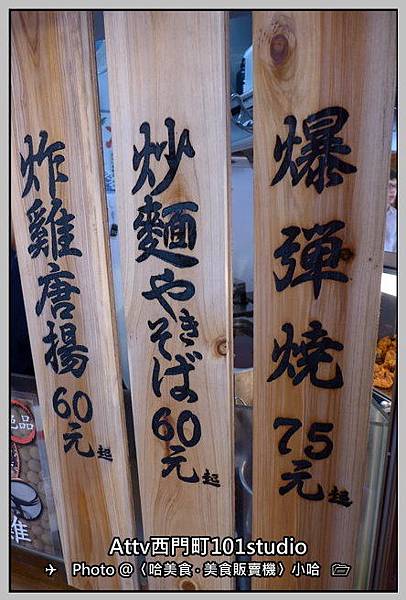 爆弾焼 75元起
炒麵やきそば 60元起
炸雞唐揚 60元起
品
雞
Attv西門町101studio
Photo @〈哈美食·美食販賣機〉小哈